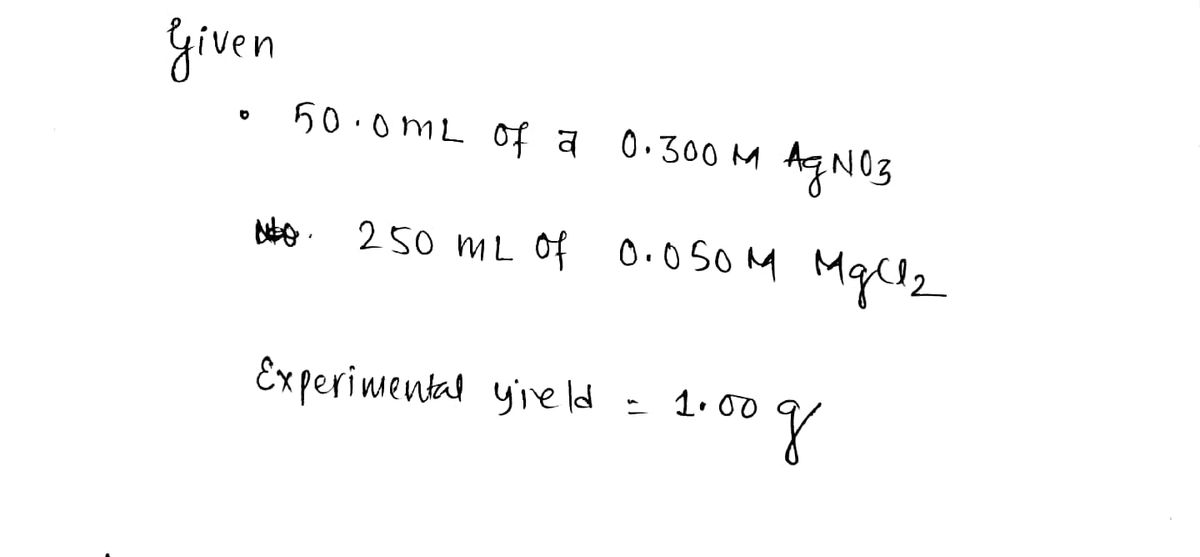 Given
• 50.0mL of a 0.300 M AgNO3
250 mL of 0.050 M MgCl2
Experimental yield = 1.00 g